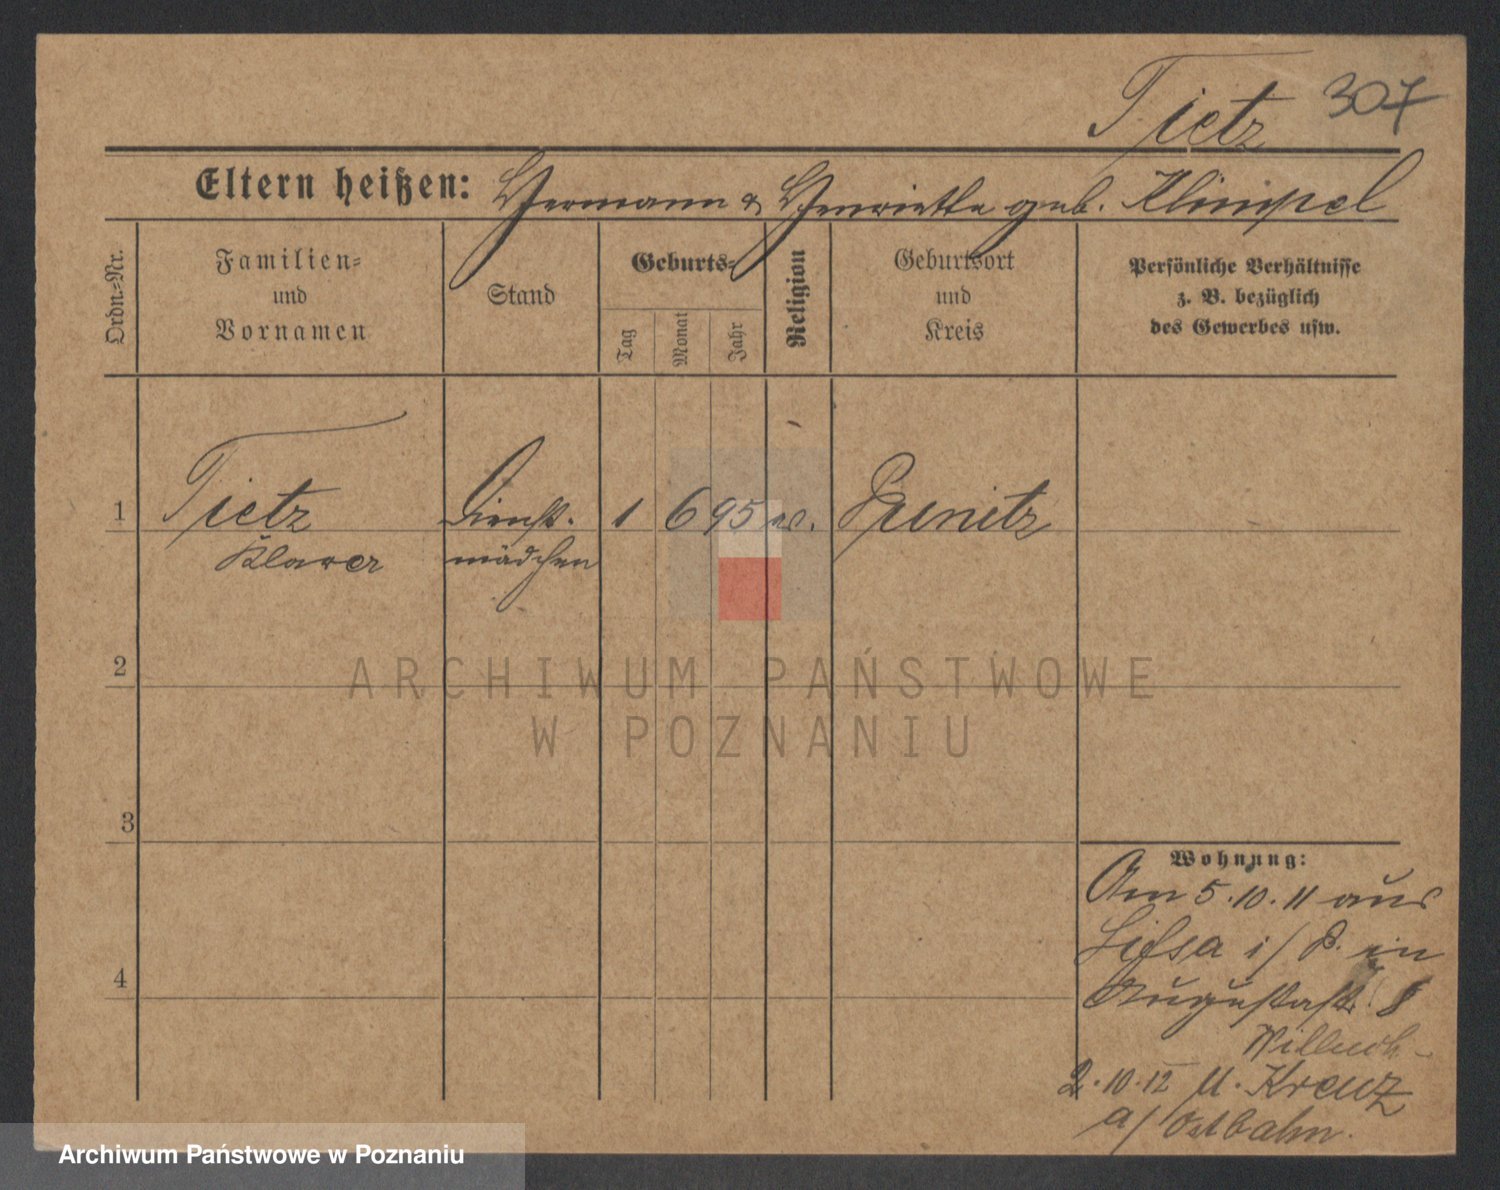 Tietz 307
Eltern heißen: Hermann & Henriette geb. Klimpel
Ordn.-Nr.
Familien-
und
Vornamen
Stand
Geburts-
Tag
Monat
Jahr
Religion
Geburtsort
und
Kreis
Persönliche Verhältnisse
z. B. bezüglich
des Gewerbes usw.
1 Tietz Dienst- 1 6 95
mädchen
2
3
4
ARCHIWUM PAŃSTWOWE
W POZNANIU
Wohnung:
Am 5.10.11 aus
Lissa i/P. in
Augustastr. 8
2.10.12 n. Kreuz
a/Ostbahn.
Archiwum Państwowe w Poznaniu